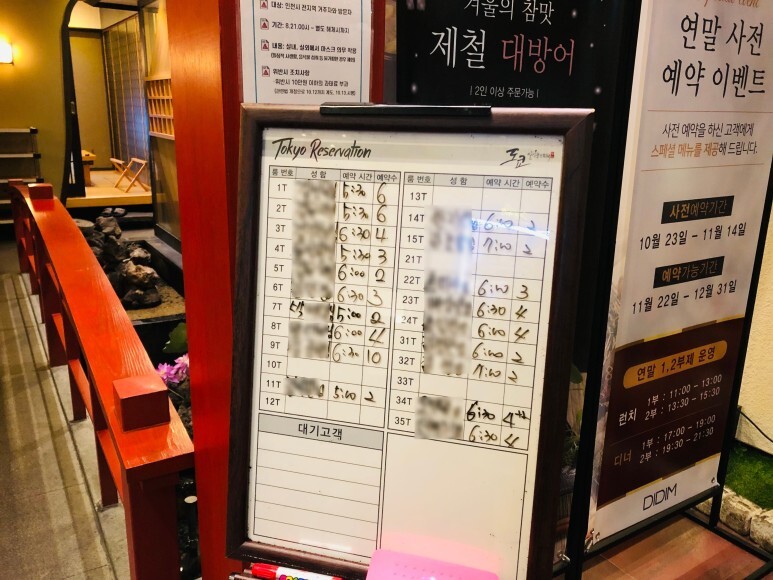 대상: 인천시 전지역 거주자와 방문자
기간: 8.21.00시 ~ 별도 해제시까지
내용: 실내, 실외에서 마스크 의무 착용
위반시 조치사항
위반시 10만원 이하의 과태료 부과
겨울의 참맛
제철 대방어
| 2인 이상 주문가능 |
Tokyo Reservation
룸 번호 성 함 예약 시간 예약수
1T 5:30 6
2T 5:30 6
3T 6:30 4
4T 5:30 3
5T 6:00 2
6T 6:30 3
7T 5:00 2
8T 6:00 4
9T 6:30 10
10T
11T 5:00 2
12T
대기고객
룸 번호 성 함 예약 시간 예약수
13T
14T 6:00 2
15T 7:00 2
21T
22T 6:00 3
23T 6:30 4
24T 6:00 4
31T 6:00 2
32T 7:00 2
33T
34T 6:30 4+2
35T 6:30 4
연말 사전
예약 이벤트
사전 예약을 하신 고객에게
스페셜 메뉴를 제공해 드립니다.
사전예약기간
10월 23일 - 11월 14일
예약가능기간
11월 22일 - 12월 31일
연말 1,2부제 운영
런치 1부 : 11:00 - 13:00
2부 : 13:30 - 15:30
디너 1부 : 17:00 - 19:00
2부 : 19:30 - 21:30
DIDIM